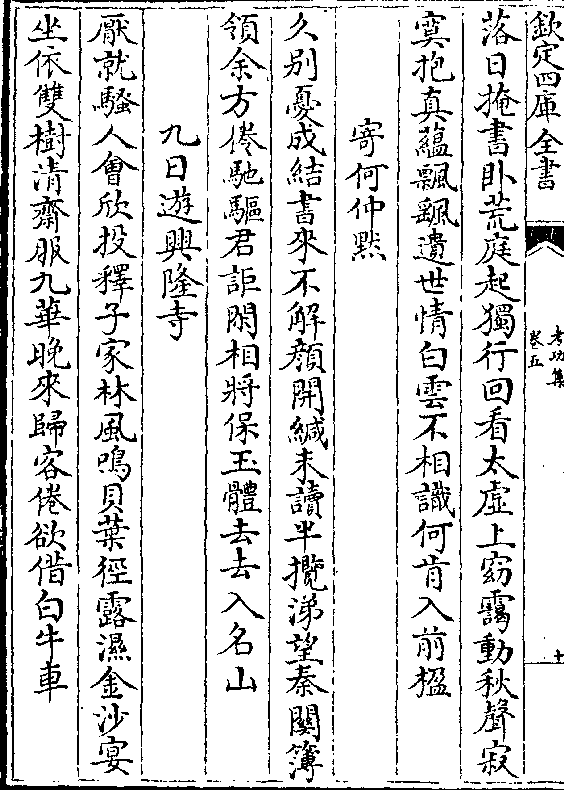 欽定四庫全書
考功集
卷五
十
落日掩書卧荒庭起獨行回看太虛上窈靄動秋聲寂
寞抱真蘊飄飖遺世情白雲不相識何肯入前楹
寄何仲黙
久别憂成結書來不解顔開緘未讀半攬涕望秦關簿
領余方倦馳驅君詎閑相將保玉體去去入名山
九日遊興隆寺
厭就騷人會欣投釋子家林風鳴貝葉徑露濕金沙宴
坐依雙樹清齋服九華晚來歸客倦欲借白牛車